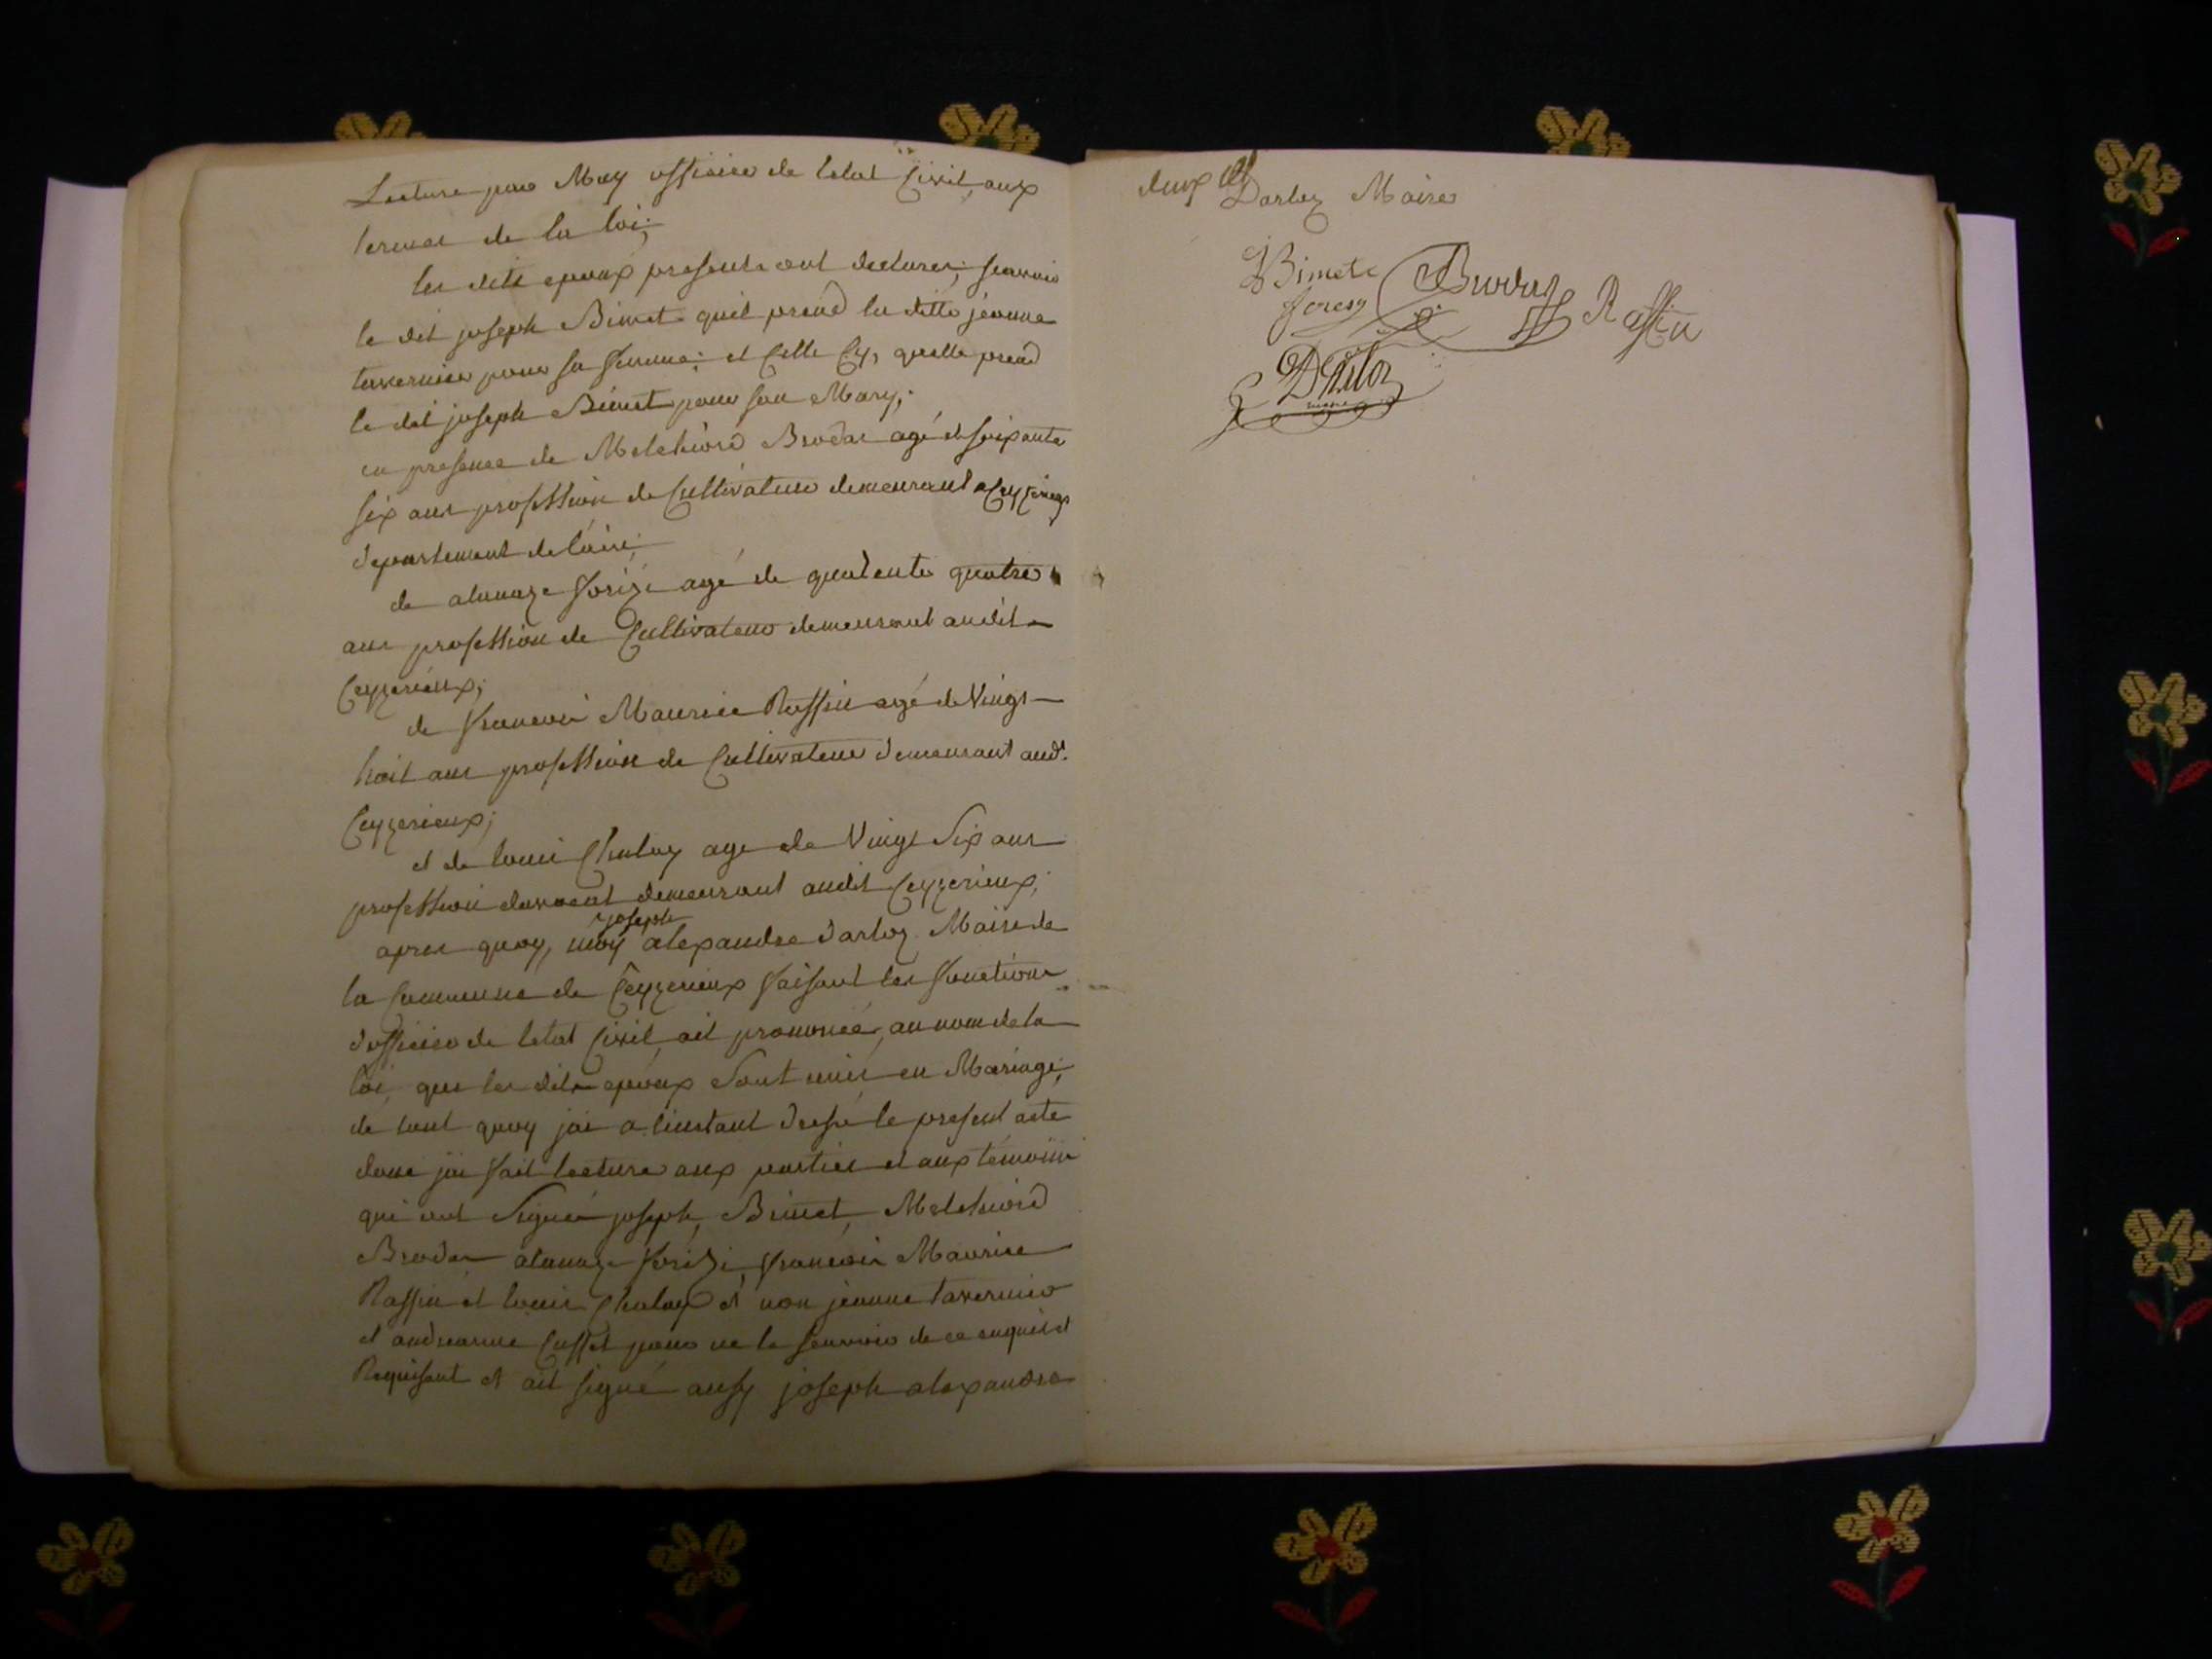 Lecture par Moy officier de letat Civil, aux
termes de la loi;
les dits epoux presents ont declarer, scavoir
le dit joseph Bimet quil prend la ditte jeanne
tavernier pour sa femme; et Celle Cy, quelle prend
le dit joseph Bimet pour son Mary;
en presence de Melchiord Brodas agé de soixante
six ans profession de Cultivateur demeurant a Ceyzerieux
departement de láin;
de alemaze forizi agé de quarente quatre
ans profession de Cultivateur demeurant audit
Ceyzerieux;
de francois Maurice Raffin agé de Vingt
huit ans profession de Cultivateur demeurant audt
Ceyzerieux;
et de louis Chaley age de Vingt Six ans
profession davocat demeurant audit Ceyzerieux;
joseph
apres quoy, moy alexandre darloz Maire de
la Commune de Ceyzerieux faisant les fonctions
dofficier de letat Civil, ait prononcé, au nom de la
loi, que les dits epoux Sont unis en Mariage;
de tout quoy jai a linstant dressé le present acte
dont jai fait lecture aux parties et aux témoins
qui ont Signés joseph, Bimet, Melchiord
Brodas alemaze forizi, francois Maurice
Raffin et louis Chaley et non jeanne tavernier
et andreanne Cusset pour ne le scavoir de ce enquis et
Requisant et ait signé ausy joseph alexandre
Darloz Maire
Bimet
forezy
Raffin
Darloz
maire